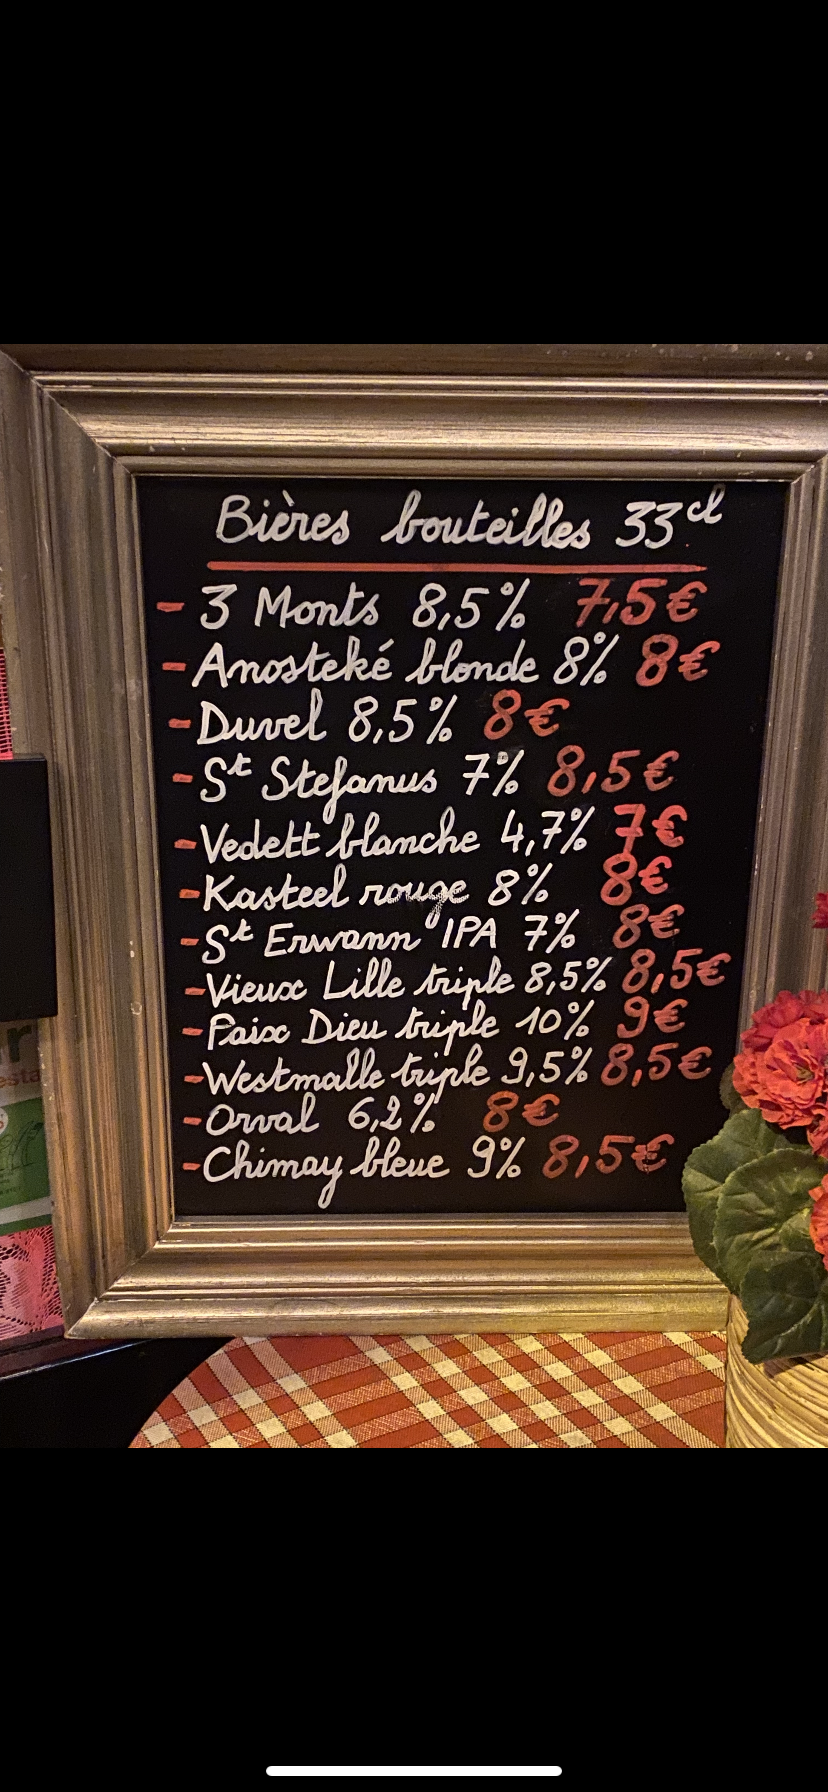 Bières bouteilles 33cl
- 3 Monts 8,5% 7,5€
- Anosteké blonde 8% 8€
- Duvel 8,5% 8€
- St Stefanus 7% 8,5€
- Vedett blanche 4,7% 7€
- Kasteel rouge 8% 8€
- St Erwann IPA 7% 8€
- Vieux Lille triple 8,5% 8,5€
- Paix Dieu triple 10% 9€
- Westmalle triple 9,5% 8,5€
- Orval 6,2% 8€
- Chimay bleue 9% 8,5€